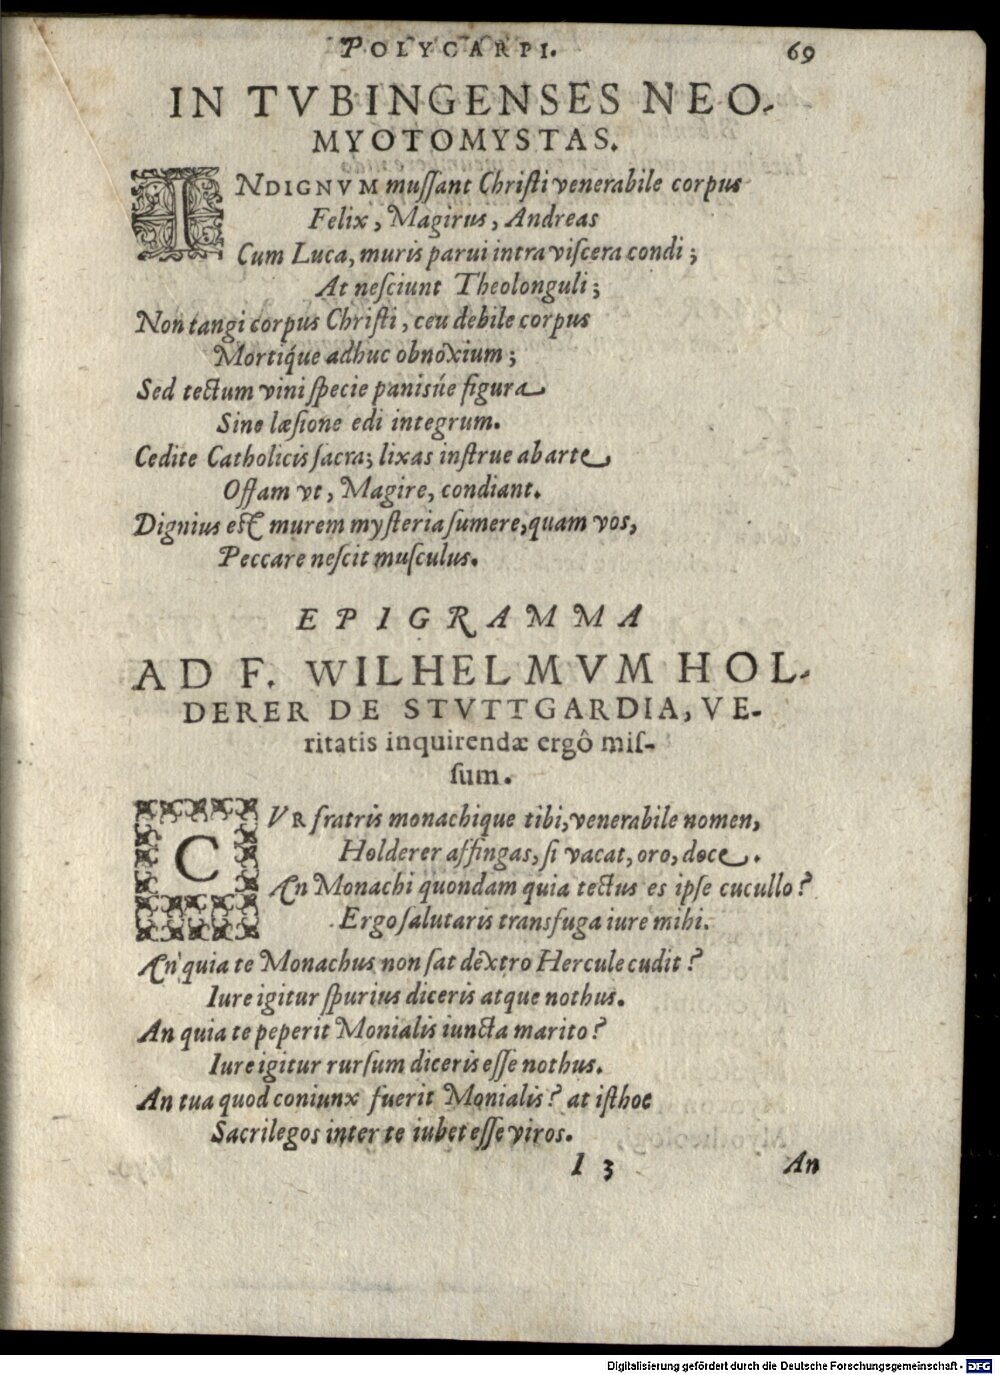 POLYCARPI. 69
IN TVBINGENSES NEO-
MYOTOMYSTAS.
INDIGNVM muſſant Chriſti venerabile corpus
Felix, Magirus, Andreas
Cum Luca, muris parui intra viſcera condi;
At neſciunt Theolonguli;
Non tangi corpus Chriſti, ceu debile corpus
Mortiq́ue adhuc obnoxium;
Sed tectum vini ſpecie panisúe figura
Sine læſione edi integrum.
Cedite Catholicis ſacra; lixas inſtrue ab arte,
Offam vt, Magire, condiant.
Dignius eſt murem myſteria ſumere, quam vos,
Peccare neſcit muſculus.
EPIGRAMMA
AD F. WILHELMVM HOL-
DERER DE STVTTGARDIA, VE-
ritatis inquirendæ ergô miſ-
ſum.
CVR fratris monachique tibi, venerabile nomen,
Holderer affingas, ſi vacat, oro, doce.
Æn Monachi quondam quia tectus es ipſe cucullo?
Ergo ſalutaris transfuga iure mihi.
Æn quia te Monachus non ſat dextro Hercule cudit?
Iure igitur ſpurius diceris atque nothus.
An quia te peperit Monialis iuncta marito?
Iure igitur rurſum diceris eſſe nothus.
An tua quod coniunx fuerit Monialis? at iſthoc
Sacrilegos inter te iubet eſſe viros.
I 3 An
Digitalisierung gefördert durch die Deutsche Forschungsgemeinschaft - DFG